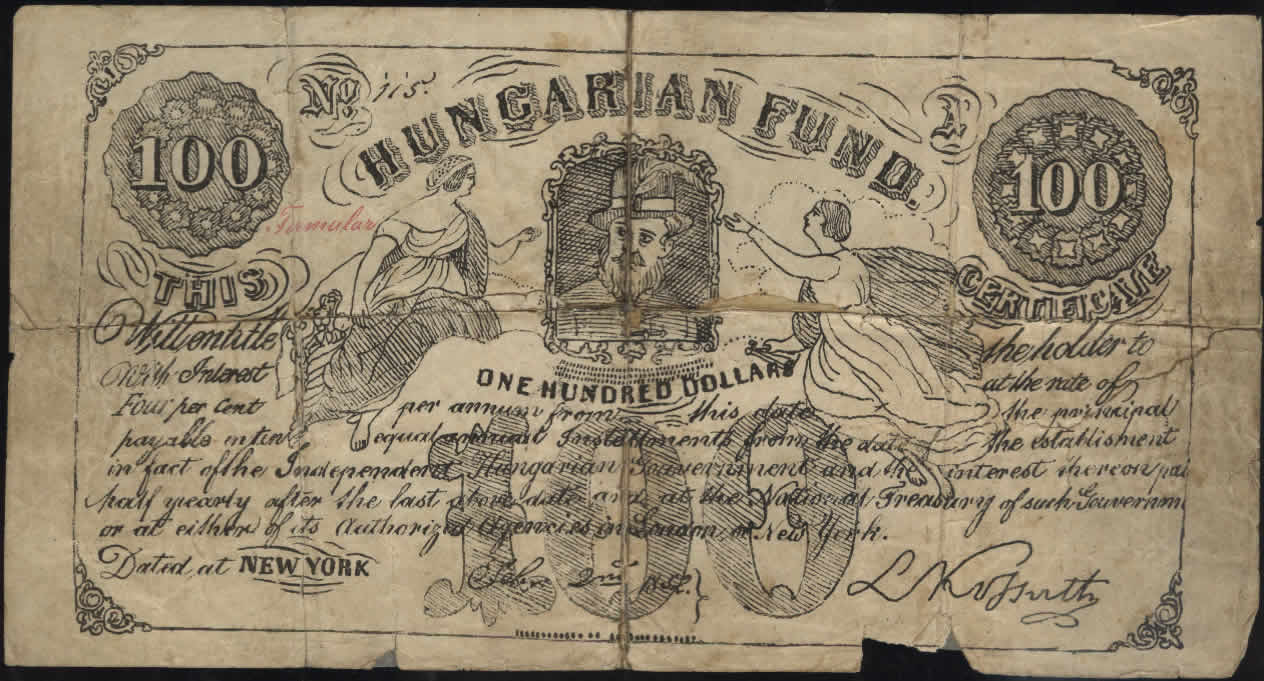 No 115. HUNGARIAN FUND. L
100
100
Formular
THIS
CERTIFICATE
Will entitle the holder to
ONE HUNDRED DOLLARS
With Interest at the rate of
Four per Cent per annum from this date the principal
payable in ten equal annual Installments from the date the establishment
in fact of the Independent Hungarian Government and the interest thereon pai
half yearly after the last above date and at the National Treasury of such Governm
or at either of its Authorized Agencies in London, or New York.
100
Dated, at NEW YORK Febr 2nd 1852. L Kossuth